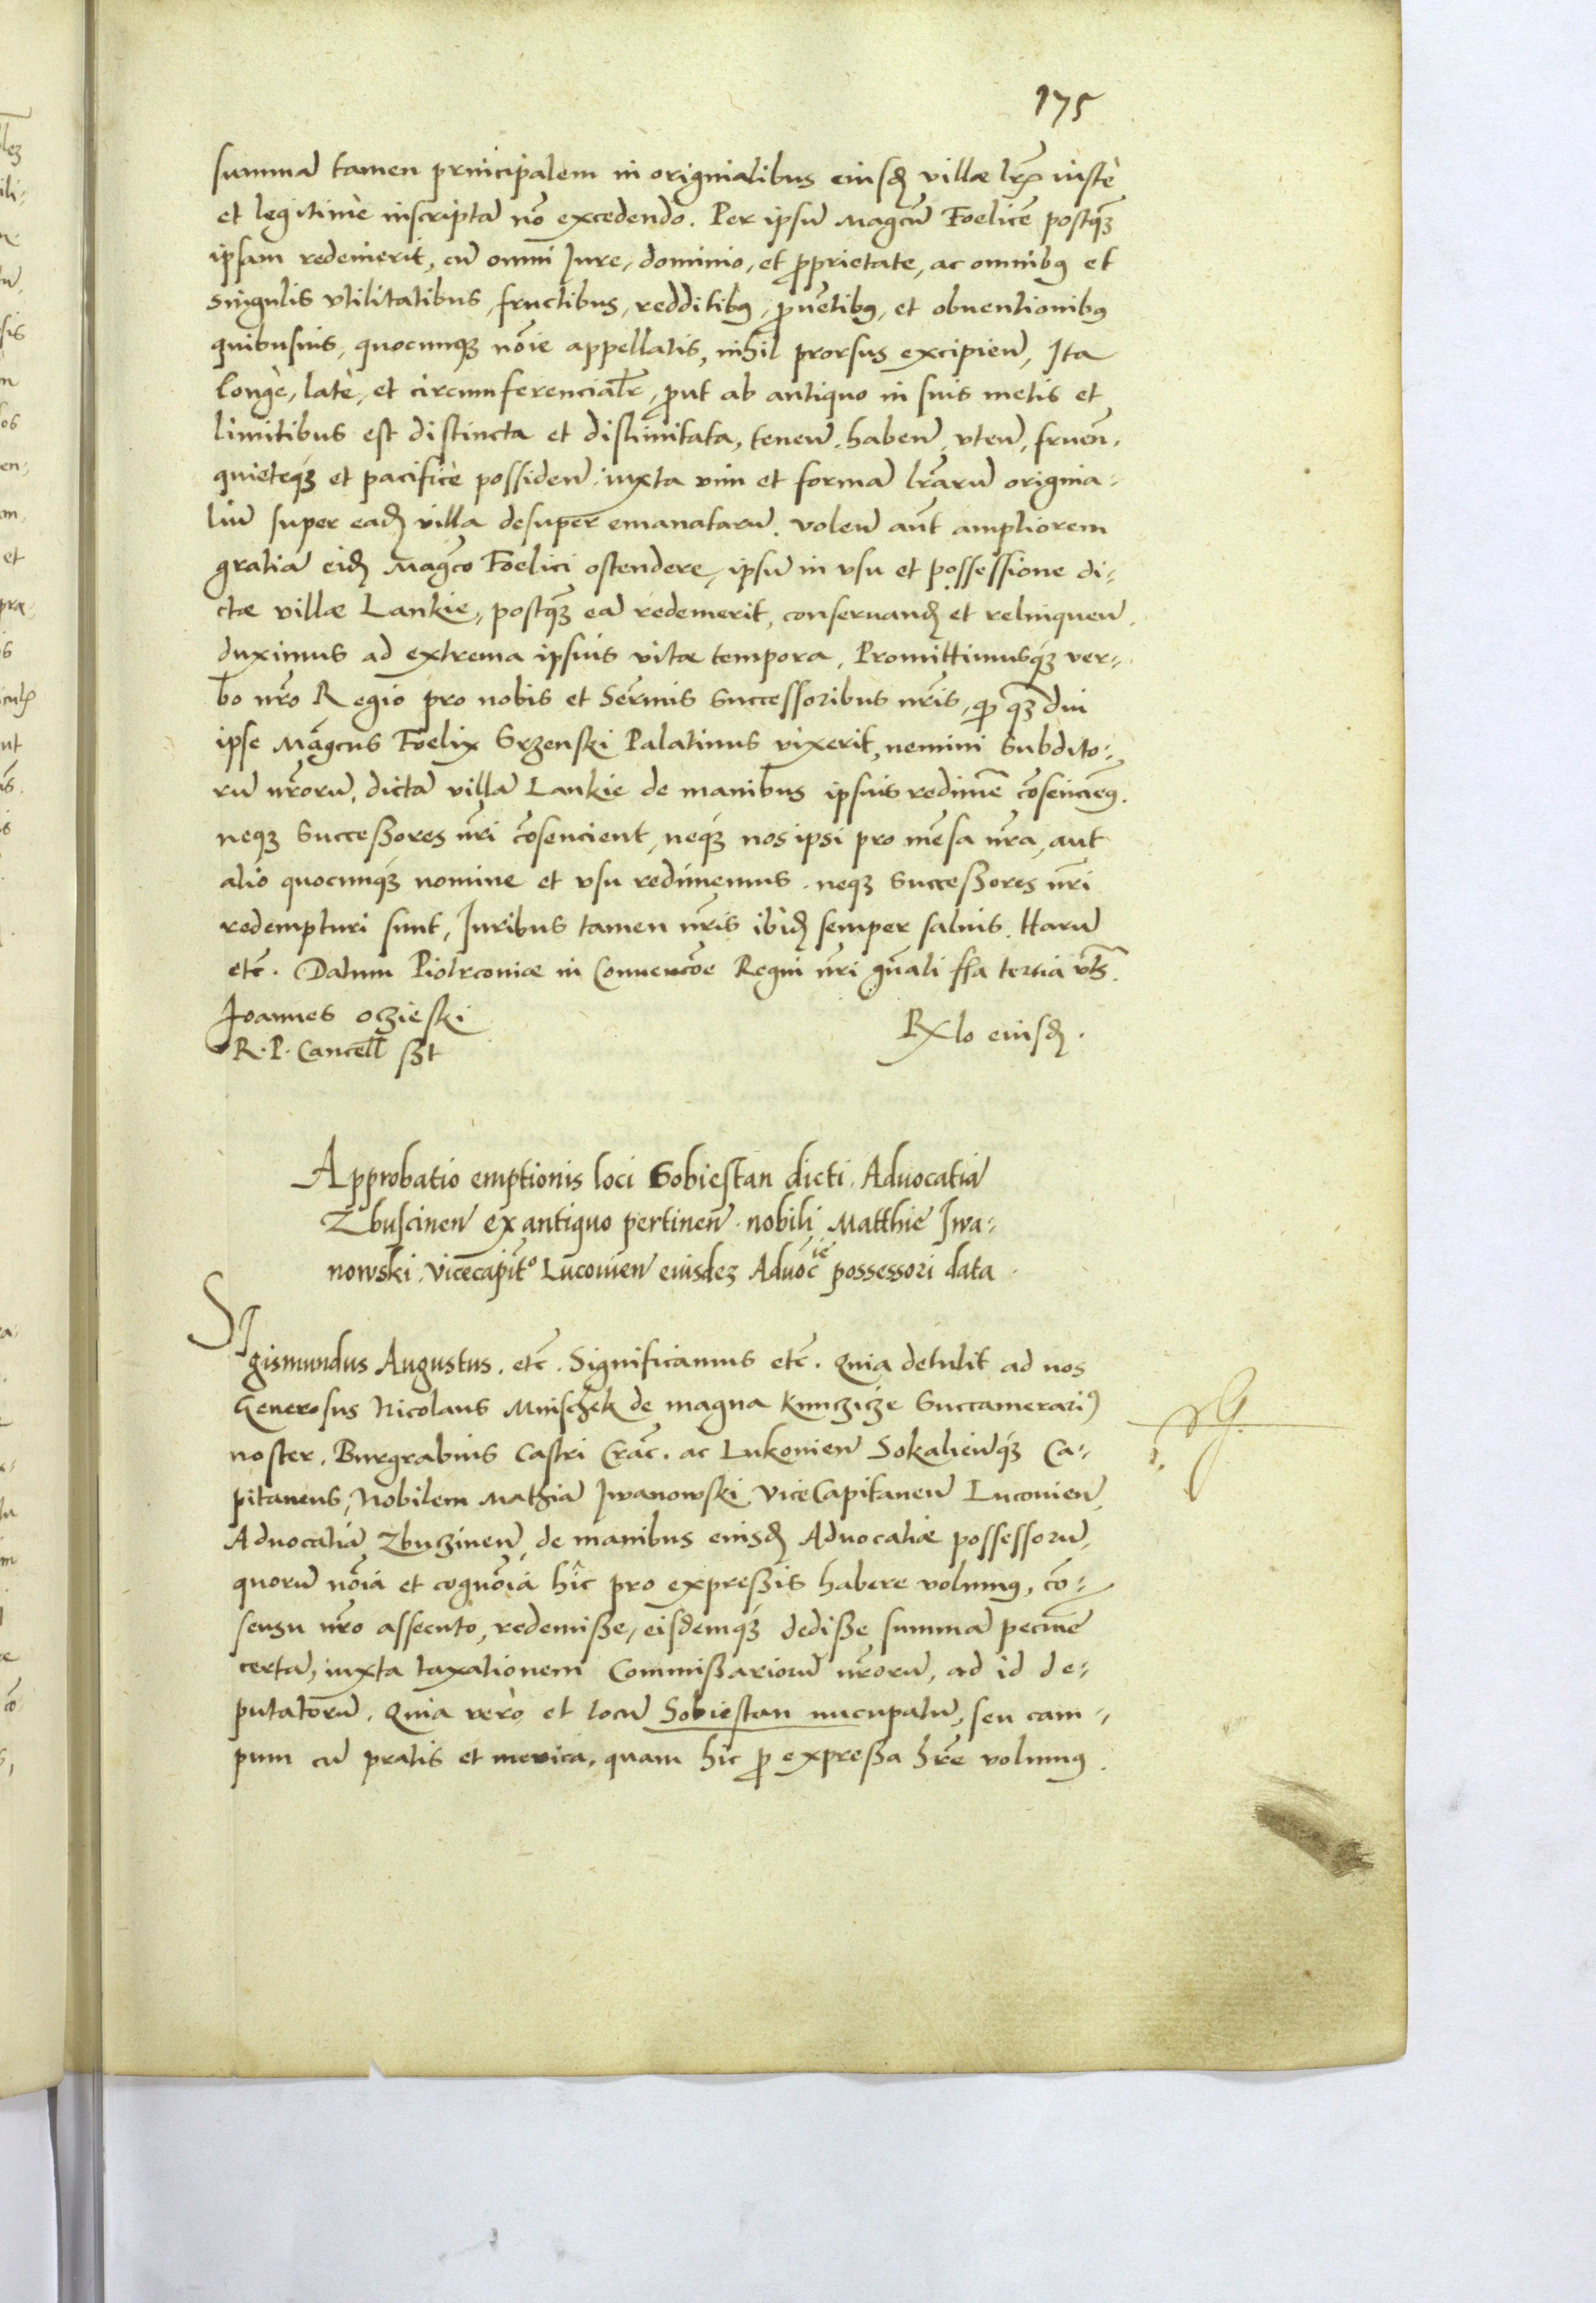 175
summā tamen principalem in originalibus eiusđ villæ lrҳ iustè
et legitimè inscriptā nō excedendo. Per ipsū Magcū Foelicē postq̄ȝ
ipsam redemerit, cū omni Jure, dominio, et ꝓprietate, ac omnibꝰ et
singulis vtilitatibus, fructibus, redditibꝰ, ꝓuētibꝰ, et obuentionibꝰ
quibusuis, quocunqȝ nōīe appellatis, nihil prorsus excipieñ, Ita
longè, latè, et circumferencialr̄, ꝓut ab antiquo in suis metis et
limitibus est distincta et dislimitata, teneñ. habeñ, vteñ, frueñ,
quieteqȝ et pacificè possideñ. iuxta vim et formā lrarū origina-
liū super eađ villa desuper emanatarū. Voleñ aūt ampliorem
gratiā eiđ Magco Foelici ostendere, ipsū in vsu et possessione di-
ctæ villæ Lankie, postq̄ȝ eā redemerit, conseruanđ et relinqueñ
duximus ad extrema ipsius vitæ tempora, Promittimusqȝ ver-
bo nr̄o Regio pro nobis et Serm̄is Successoribus nr̄is, ꝙ q̄ȝ diu
ipse Magcus Foelix Srzenski Palatinus vixerit, nemini Subdito-
rū nr̄orū, dictā villā Lankie de manibus ipsius redimē cōsenciemꝰ.
neqȝ Successores nr̄i cōsencient, neqȝ nos ipsi pro mēsa nr̄a, aut
alio quocunqȝ nomine et vsu redimemus. neqȝ Successores nr̄i
redempturi sunt, Juribus tamen nr̄is ibiđ semper saluis. Harū
etc̄. Datum Piotrconiæ in Conuencōe Regni nr̄i gn̄ali ffa tertia vts̄.
Joannes oczieski
R. P. Cancell̄ sst
Rҳlo eiusđ.
Approbatio emptionis loci Sobiestan dicti. Aduocatiā
Zbuscineñ ex antiquo pertineñ. nobili Matthie Iwa-
nowski. Vicecapitº Lucouieñ eiusdeȝ Aduōcie possessori data.
SIgismundus Augustus. etc̄. Significamus etc̄. Quia detulit ad nos
Generosus Nicolaus Mnischek de magna Kunczicze Succamerariꝰ
noster. Burgrabius Castri Crac̄. ac Lukouieñ Sokalieñqȝ Ca-
pitaneus, Nobilem Mathiā Iwanowski ViceCapitaneū Lucouieñ
Aduocatiā Zbuczineñ de manibus eiusđ Aduocatiæ possessorū,
quorū nōīa et cognōīa hîc pro expressis habere volumꝰ, cō-
sensu nr̄o assecuto, redemisse, eisdemqȝ dedisse summā pecuniē
certā, iuxta taxationem Commissariorū nr̄orū, ad id de-
putatorū. Quia verò et locū Sobiestan nūcupatū, seu cam-
pum cū pratis et merica, quam hîc ꝓ expressa hr̄e volumꝰ.